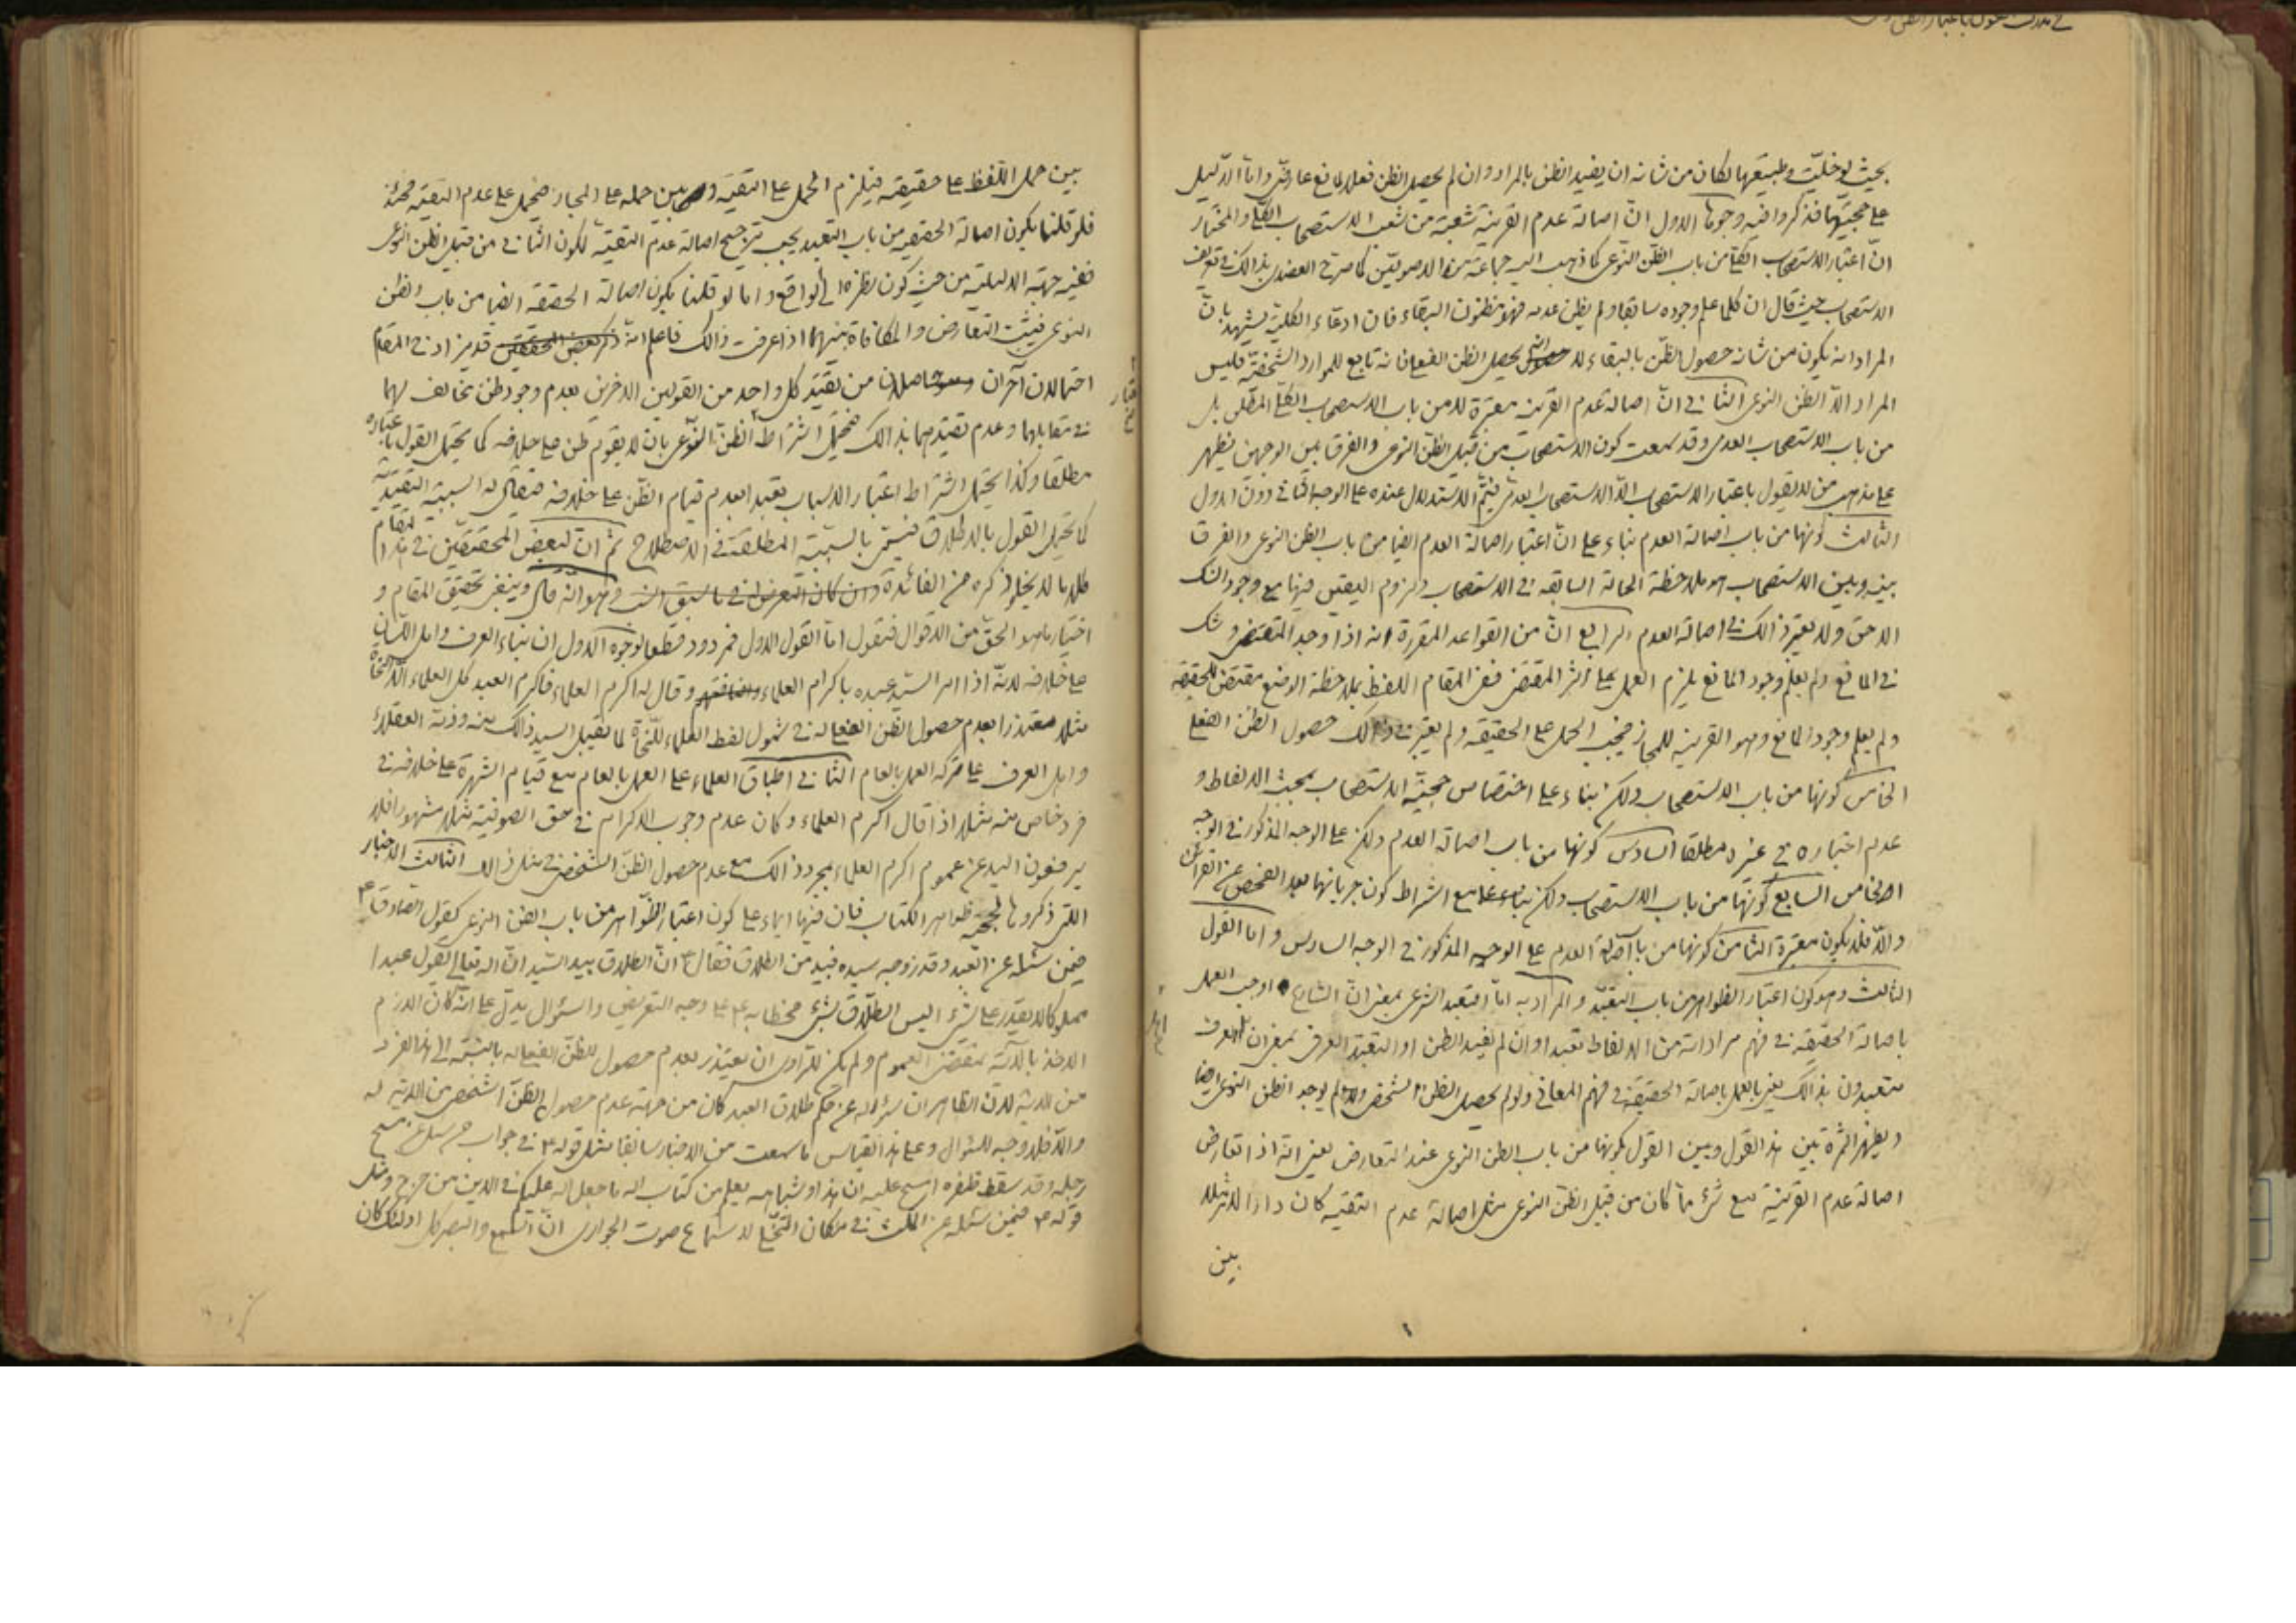 بحيث لو خليّت و طبيعتها لكان من شانه ان يفيد الظن بالمراد وان لم يحصل الظن فعلا لمانع عارضى واما الدّليل
على حجيتها فذكروا فيه وجوها الاول انّ اصالة عدم القرينة شعبة من شعب الاستصحاب الكلى والمختار
انّ اعتبار الاستصحاب من باب الظنّ النّوعى كما ذهب اليه جماعة من الاصوليّين كما صرّح العضدى بذالك فى تعريف
الاستصحاب حيث قال ان كلما علم وجوده سابقا ولم يظن عدمه فهو مظنون البقاء فان ادعاء الكلية يشهد بانّ
المراد انه يكون من شانه حصول الظنّ بالبقاء لا انه يحصل الظن الفعلى فانه تابع للموارد الشخصيّة فليس
المراد الّا الظن النوعى الثانى انّ اصالة عدم القرينه معتبرة لا من باب الاستصحاب الكلّى المطلق بل
من باب الاستصحاب العدمى وقد سمعت كون الاستصحاب من قبيل الظنّ النوعى والفرق بين الوجهين يظهر
على مذهب من لا يقول باعتبار الاستصحاب الّا الاستصحاب العدمى فيتمّ الاستدلال عنده على الوجه الثانى دون الاول
الثالث كونها من باب اصالة العدم بناء على انّ اعتبار اصالة العدم ايضا من باب الظن النوعى والفرق
بينه وبين الاستصحاب هو ملاحظة الحالة السابقه فى الاستصحاب ولزوم اليقين فيها مع وجود الشك
اللاحق ولا يعتبر ذالك فى اصالة العدم الرابع انّ من القواعد المقررة انه اذا وجد المقتضى وشك
فى المانع ولم يعلم وجود المانع يلزم العمل على اثر المقتضى ففى المقام اللفظ بملاحظة الوضع مقتض للحقيقة
ولم يعلم وجود المانع وهو القرينه للمجاز فيجب الحمل على الحقيقه ولم يعتبر فى ذالك حصول الظن الفعلى
الخامس كونها من باب الاستصحاب ولكن بناء على اختصاص حجيّة الاستصحاب بمبحث الالفاظ و
عدم اعتباره فى غيره مطلقا السادس كونها من باب اصالة العدم ولكن على الوجه المذكور فى الوجه
الخامس السابع كونها من باب الاستصحاب ولكن مع اشتراط كون جريانها بعد الفحص عن القرائن
والّا فلا يكون معتبرة الثامن كونها من باب اصالة العدم على الوجه المذكور فى الوجه السادس واما القول
الثالث وهو كون اعتبار الظواهر من باب التعبّد والمراد به امّا التعبد الشرعى بمعنى انّ الشارع اوجب العمل
باصالة الحقيقة فى فهم مراداته من الالفاظ تعبدا وان لم يفيد الظن او التعبّد العرفى بمعنى ان اهل العرف
متعبدون بذالك يعنى بالعمل باصالة الحقيقة فى فهم المعانى ولو لم يحصل الظن الشخصى ولم يوجد الظن النوعى ايضا
ويظهر الثمرة بين هذا القول وبين القول بكونها من باب الظن النوعى عند التعارض يعنى انّه اذا تعارض
اصالة عدم القرينة مع شئ ممّا كان من قبيل الظنّ النوعى مثل اصالة عدم التقيه كان دار الامر مثلا
بين
بين حمل اللّفظ على حقيقته فيلزم الحمل على التقيّة وبين حمله على المجاز فيحمل على عدم التقيّه فحينئذ
فلو قلنا بكون اصالة الحقيقه من باب التعبد يجب ترجيح اصالة عدم التقيّة لكون الثانى من قبيل الظن النوعى
ففيه جهة الدليليّة من حيث كون نظره الى الواقع واما لو قلنا بكون اصالة الحقيقه ايضا من باب الظن
النوعى فيثبت التعارض والمكافاة بينهما اذا عرفت ذالك فاعلم انّه قد يزاد فى المقام
احتمالان آخران حاصلان من تقيّد كل واحد من القولين الاخرين بعدم وجود ظن مخالف لهما
فى مقابلهما وعدم تقيّدهما بذالك فيحتمل اشتراط الظنّ النّوعى بان لا يقوم ظن على خلافه كما يحتمل القول باعتباره
مطلقا وكذا يحتمل اشتراط اعتبار الاسباب تعبّدا بعدم قيام الظنّ على خلافه فيقال له السببيّة التقيّديّة
كما يحتمل القول بالاطلاق فيسمّى بالسببيّة المطلقة فى الاصطلاح ثمّ انّ لبعض المحققين فى هذا المقام
كلاما لا يخلو ذكره من الفائدة وان كان التعرض له فى ما سبق انسب وهو انّه قال وينبغى تحقيق المقام و
اختيار ما هو الحقّ من الاقوال فنقول امّا القول الاول فمردود قطعا لوجوه الاول ان بناء العرف واهل اللسان
على خلافه لانّه اذا امر السيّد عبده باكرام العلماء وقال له اكرم العلماء فاكرم العبد كل العلماء الّا النحاة
مثلا معتذرا بعدم حصول الظنّ الفعلى له فى شمول لفظ العلماء للنّحاة لما يقبل السيد ذالك منه وذمّه العقلاء
واهل العرف على تركه العمل بالعام الثانى اطباق العلماء على العمل بالعام مع قيام الشهرة على خلافه فى
فرد خاص منه مثلا اذا قال اكرم العلماء وكان عدم وجوب الاكرام فى حق الصوفيّة مثلا مشهورا فلا
يرفعون اليد عن عموم اكرم العلماء بمجرد ذالك مع عدم حصول الظنّ الشخصى فى مثل ذالك الثالث الاخبار
التى ذكروها لحجيّة ظواهر الكتاب فان فيها ايماء على كون اعتبار الظّواهر من باب الظن النوعى كقول الصادق ع
فيمن سئله عن العبد وقد زوجه سيده فبيد من الطلاق فقال ع انّ الطلاق بيد السّيد انّ اله تعالى يقول عبدا
مملوكا لا يقدر على شئ اليس الطّلاق بشئ فخطابه ع على وجه التعريض والسئوال يدلّ على انّه كان اللازم
الاخذ بالآية بمقتضى العموم ولم يكن للرّاوى ان يعتذر بعدم حصول الظنّ الفعلى له بالنسبة الى هذا الفرد
من الآية لانّ الظاهر ان سؤاله عن حكم طلاق العبد كان من جهة عدم حصول الظنّ الشخصى من الآية له
والّا فلا وجه للسّئوال وعلى هذا القياس ما سمعت من الاخبار سابقا مثل قوله ع فى جواب من سئل عن مسح
رجله وقد سقط ظفره امسح عليه ان هذا واشباهه يعلم من كتاب اله ما جعل اله عليكم فى الدين من حرج ومثل
قوله ع فيمن سئله عن المكث فى مكان التّخلى لاستماع صوت الجوارى انّ السّمع والبصر كل اولئك كان